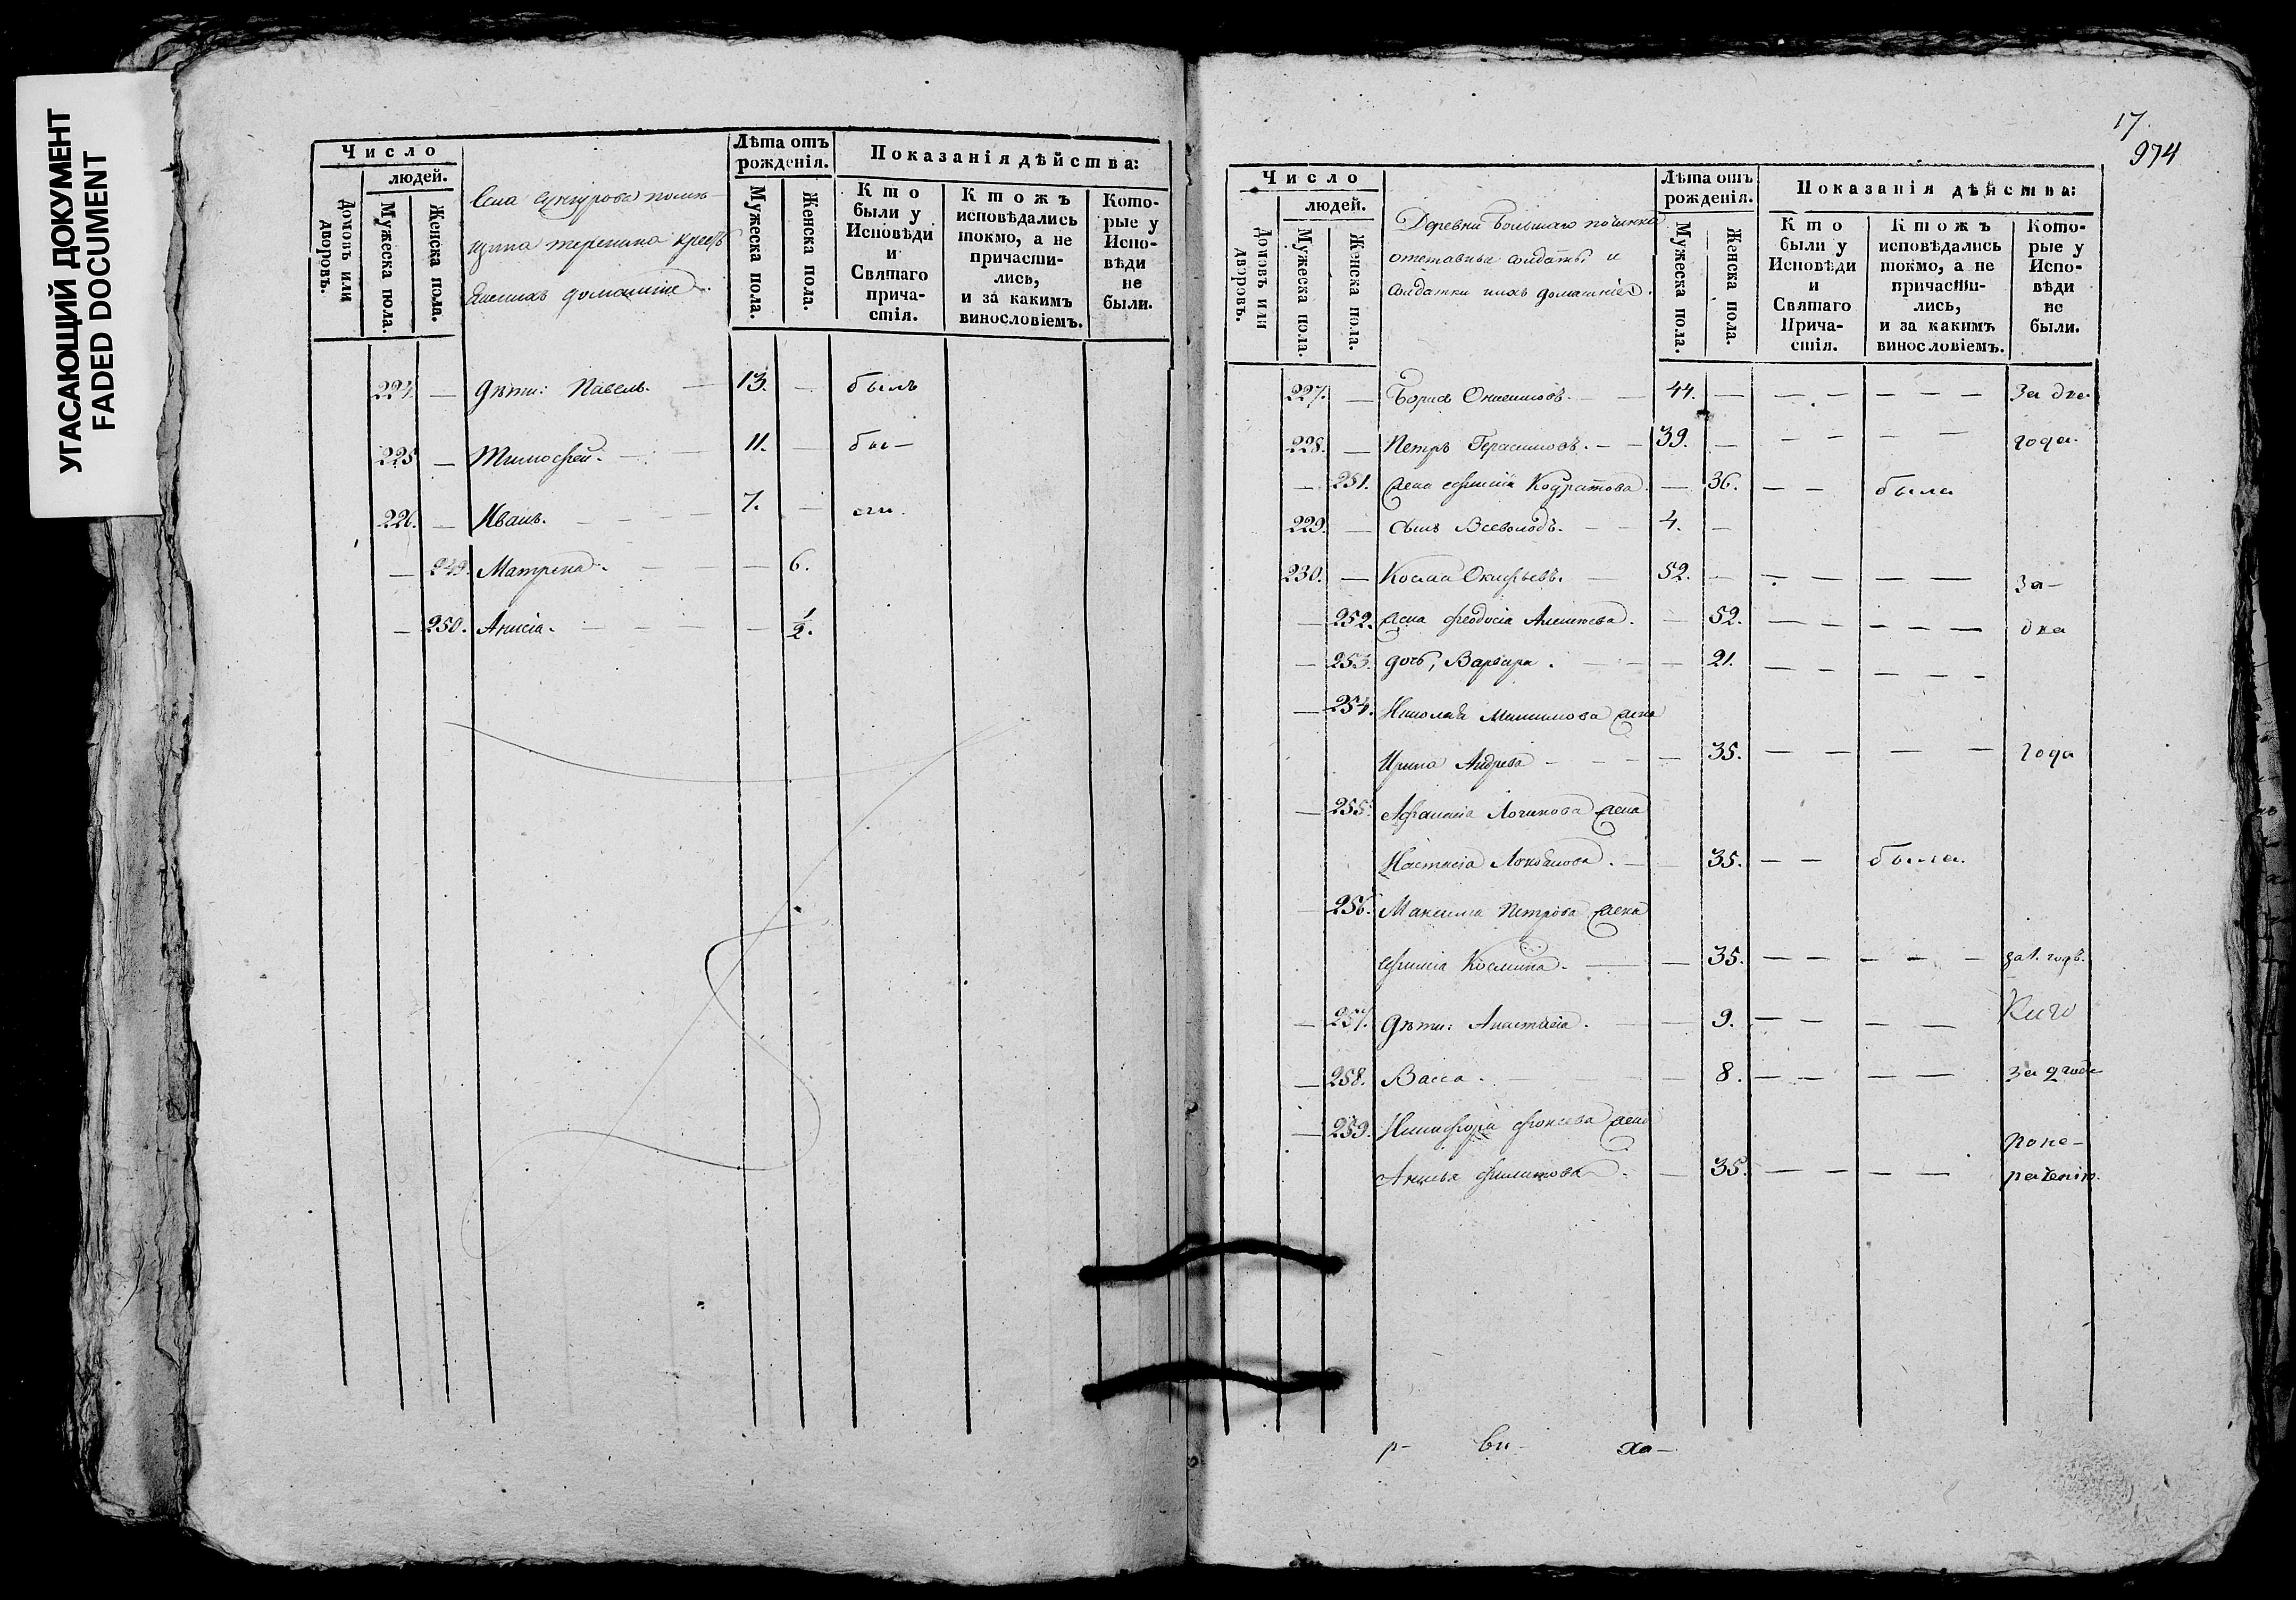 УГАСАЮЩИЙ ДОКУМЕНТ
FADED DOCUMENT
Число
людей.
Домовъ или дворовъ.
Мужеска пола.
Женска пола.
Лѣта отъ рожденія.
Мужеска пола.
Женска пола.
Показанія дѣйства:
Кто были у Исповѣди и Святаго причастія.
Ктожъ исповѣдались токмо, а не причастились, и за какимъ винословіемъ.
Которые у Исповѣди не были.
224. — дѣти: Павелъ. — 13. — былъ
225 — Тимофей. — 11. — бы—
226. — Иванъ. — 7. —
— 249. Матрена. — — 6.
— 250. Анисіа. — — 1/2.
17.
974
Число
людей.
Домовъ или дворовъ.
Мужеска пола.
Женска пола.
Деревни Большаго починка
отставныя солдаты и
солдатки и ихъ домашніе.
Лѣта отъ рожденія.
Мужеска пола.
Женска пола.
Показанія дѣйства:
Кто были у Исповѣди и Святаго Причастія.
Ктожъ исповѣдались токмо, а не причастились, и за какимъ винословіемъ.
Которые у Исповѣди не были.
227. — Борисъ 44. — за два
228. — Петръ Герасимовъ. — 39. — года.
— 251. жена Кодратова. — 36. — была
229. — сынъ Всеволодъ. — 4. —
230. — Косма Окифьевъ. — 52. — за—
— 252. жена Феодосіа — 52. — два
— 253. дочь, Варвара. — 21. —
— 254. Николая Максимова жена
Ирина Андрева — 35. — года
— 255. Афанасіа Логинова жена
Настасіа — 35. — была.
— 256. Максима Петрова жена
Космина. — 35. — за 1. годъ.
— 257. дѣти: Анастасіа. — 9. —
— 258. Васса. — 8. — за 2 года
— 259. Никифора жена
Филипова — 35. — поне—
раченію.